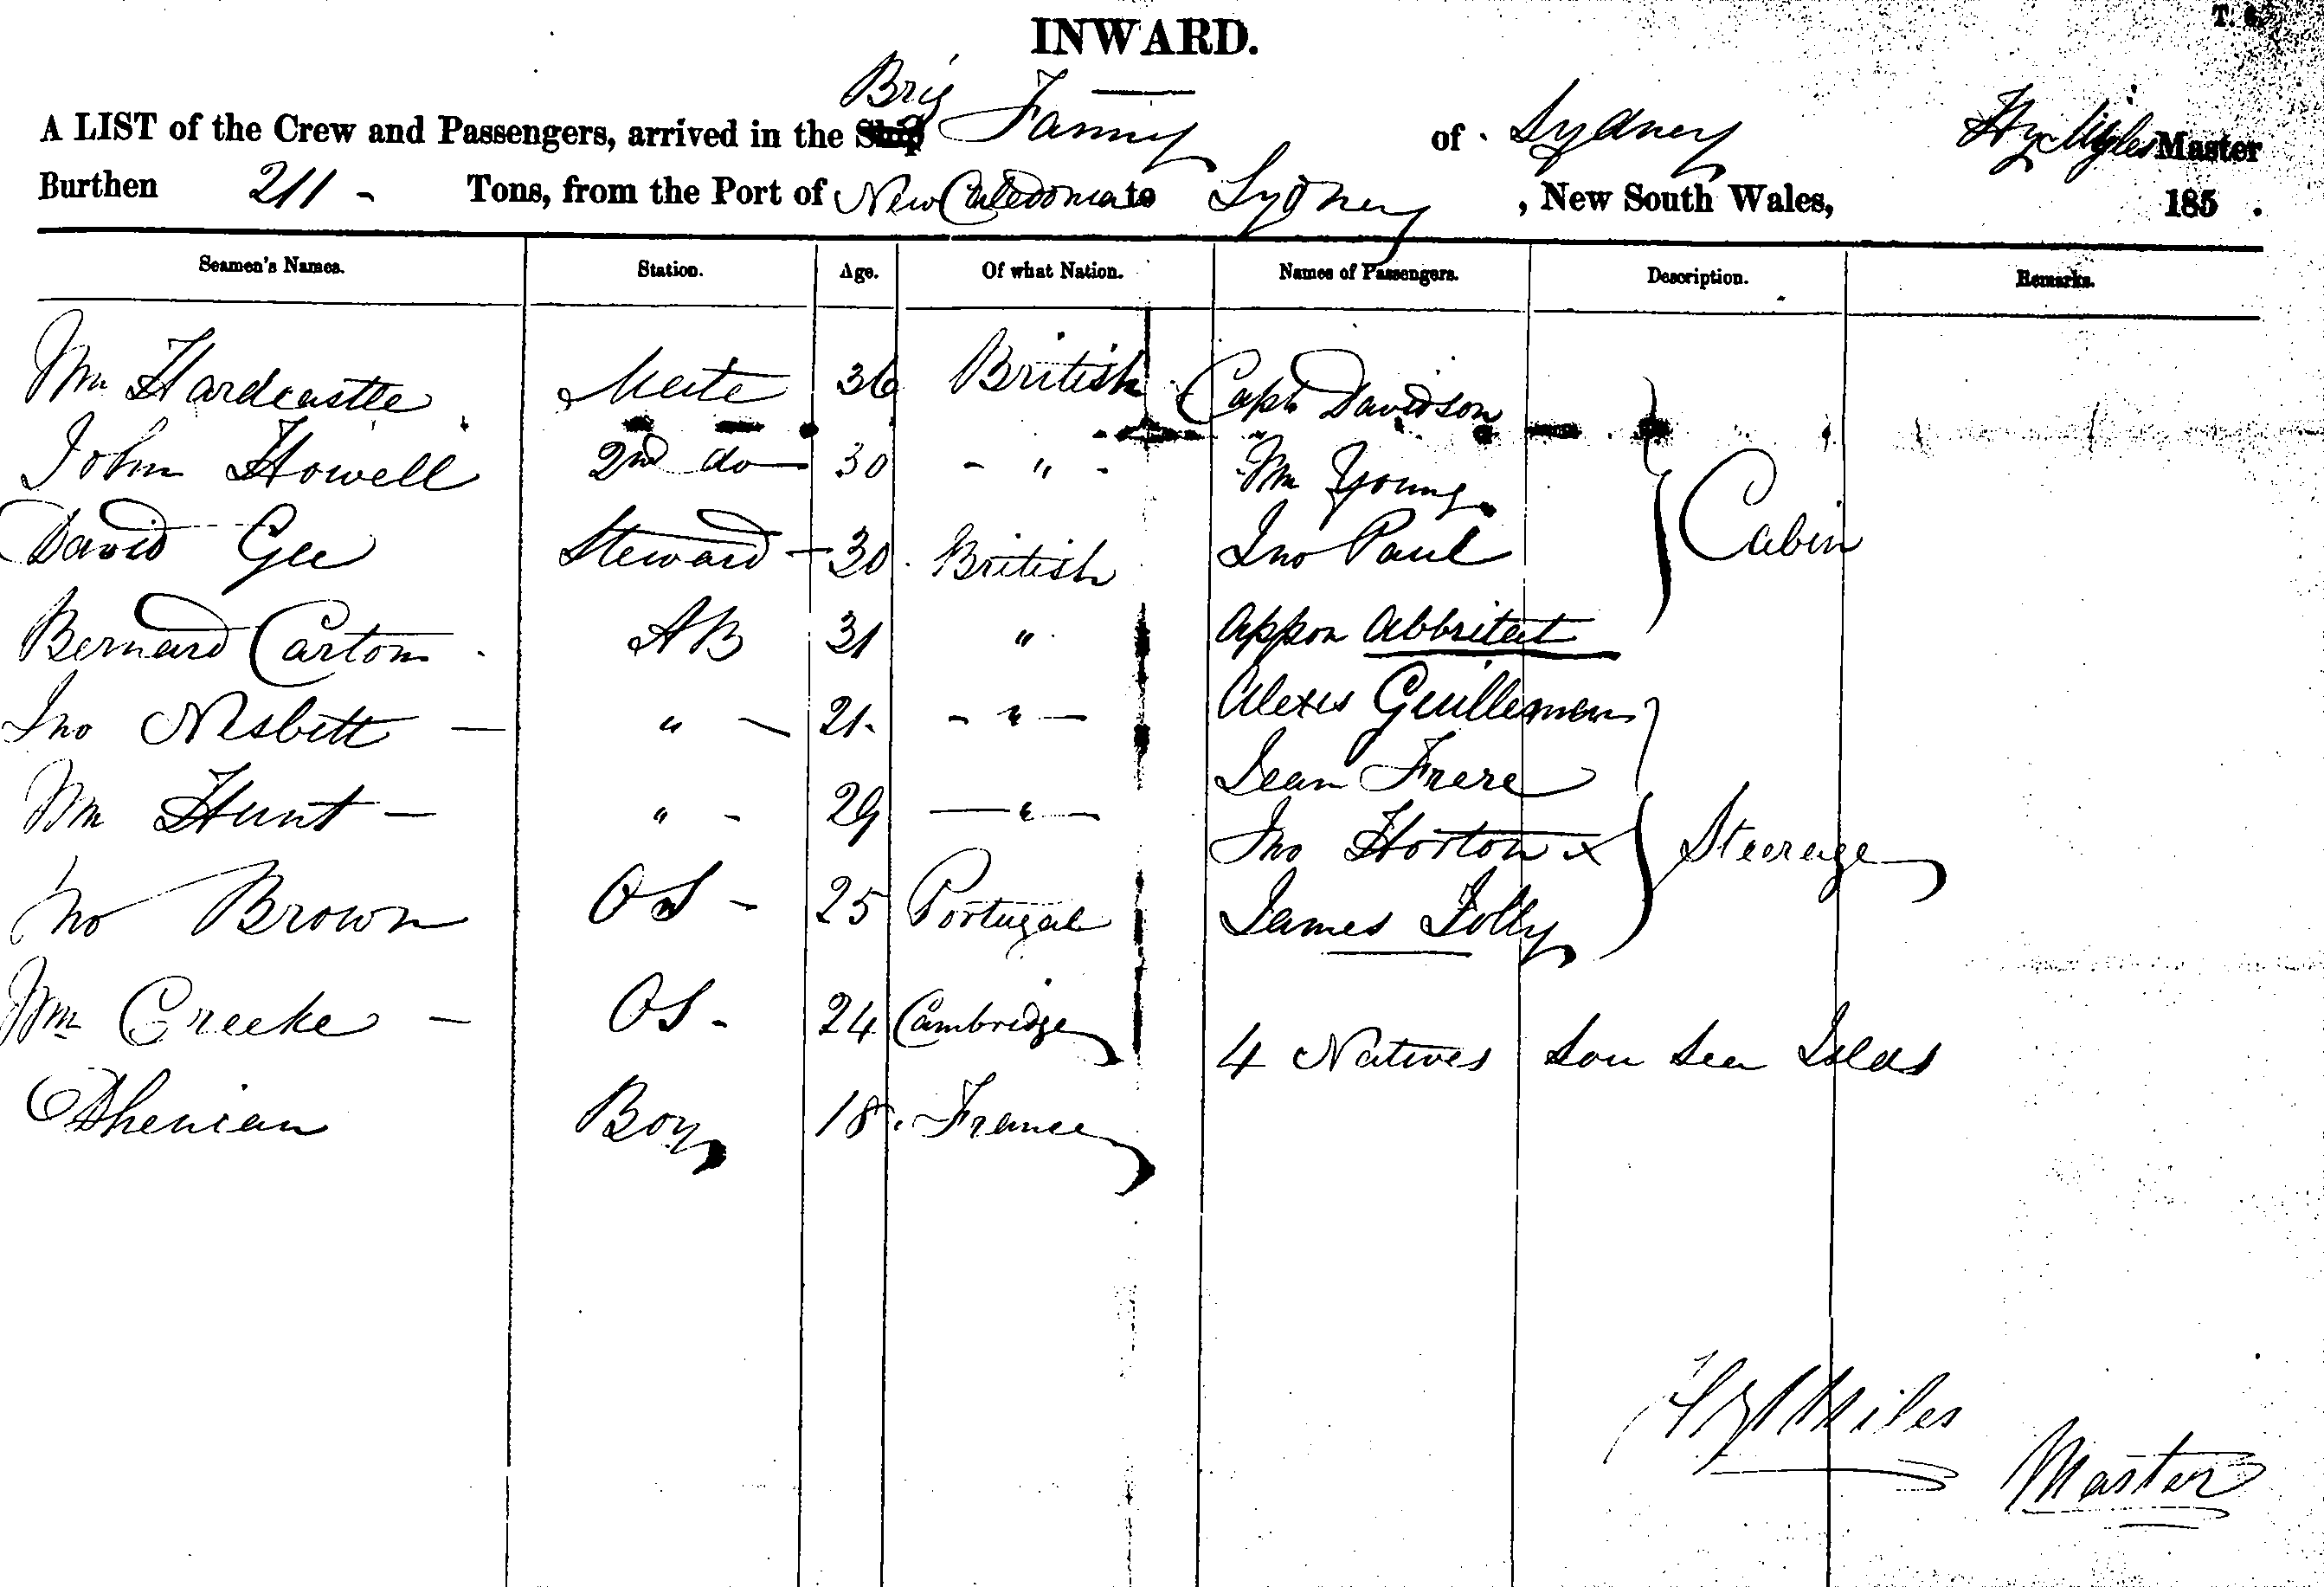 T. 6.
INWARD.
Brig
A LIST of the Crew and Passengers, arrived in the Ship Fanny of Sydney Hy Myles Master
Burthen 211 - Tons, from the Port of New Caledonia to Sydney, New South Wales, 185 .
Seamen's Names. Station. Age. Of what Nation. Names of Passengers. Description. Remarks.
Wm Hardcastle Mate 36 British Capt Davidson
John Howell 2nd do 30 - " - Wm Young
David Gee Steward 30 British Jno Paul Cabin
Bernard Carton AB 31 " Appon
Jno Nesbitt — " — 21 - " — Alexis
Wm Hunt — " - 29 — " — Jean Frere
Jno Horton x Steerage
Jno Brown OS - 25 Portugal James Jolly
Wm Creeke — OS - 24 Cambridge
4 Natives Sou Sea Islds
Boy 18 France
Hy Miles
Master